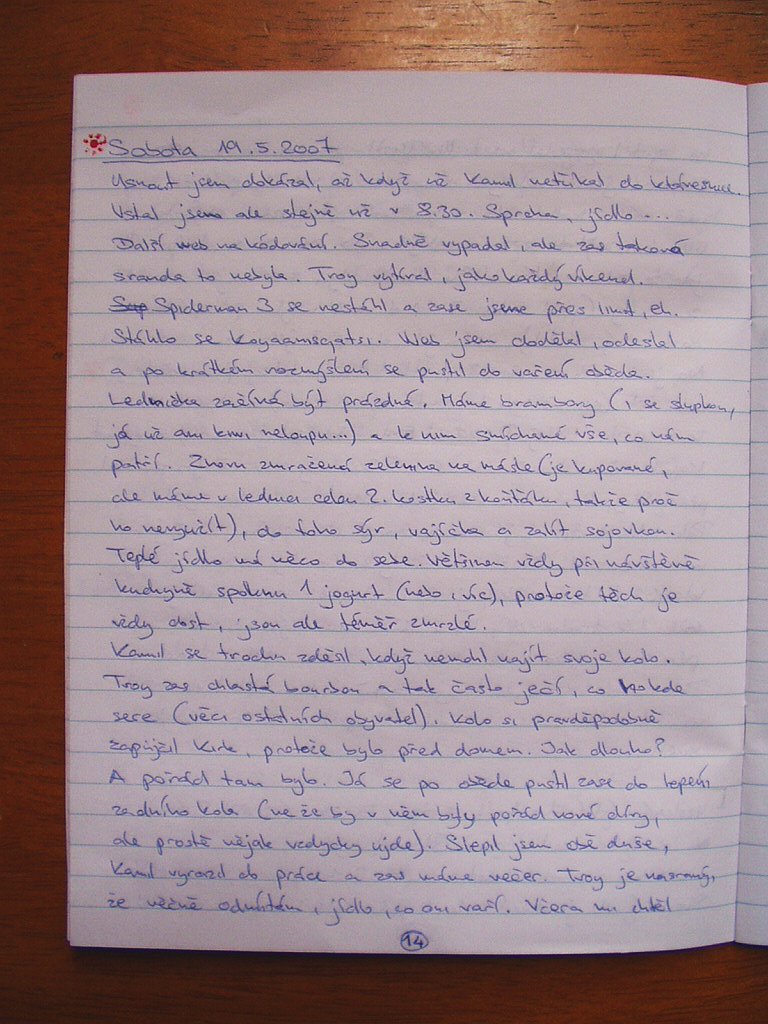 Sobota 19.5.2007
Usnout jsem dokázal, až když už Kamil neťukal do klávesnice.
Vstal jsem ale stejně už v 8.30. Sprcha, jídlo...
Další web na kódování. Snadně vypadal, ale zas taková
sranda to nebyla. Troy vytíral, jako každý víkend.
Spiderman 3 se nestáhl a zase jsme přes limit, eh.
Stáhlo se Koyaanisqatsi. Web jsem dodělal, odeslal
a po krátkém rozmýšlení se pustil do vaření oběda.
Lednička začíná být prázdná. Máme brambory (i se slupkou,
já už ani krwi neloupu...) a k nim smíchané vše, co nám
patří. Znovu zmražená zelenina na másle (je kupované,
ale máme v lednici celou 2. kostku z košťálu, takže proč
ho nevyužít), do toho sýr, vajíčka a zalít sojovkou.
Teplé jídlo má něco do sebe. Většinou vždy při návštěvě
kuchyně spolknu 1 jogurt (nebo i víc), protože těch je
vždy dost, jsou ale téměř zmrzlé.
Kamil se trochu zděsil, když nemohl najít svoje kolo.
Troy zas chlastá bourbon a tak často ječí, co kde
sere (věci ostatních obyvatel). Kolo si pravděpodobně
zapůjčil Kirk, protože bylo před domem. Jak dlouho?
A pořád tam bylo. Já se po obědě pustil zase do lepení
zadního kola (ne že by v něm byly pořád nové díry,
ale prostě nějak vždycky ujde). Slepil jsem obě duše,
Kamil vyrazil do práce a zas máme večer. Troy je nasraný,
že věčně odmítám, jídlo, co on vaří. Včera mi chtěl
14